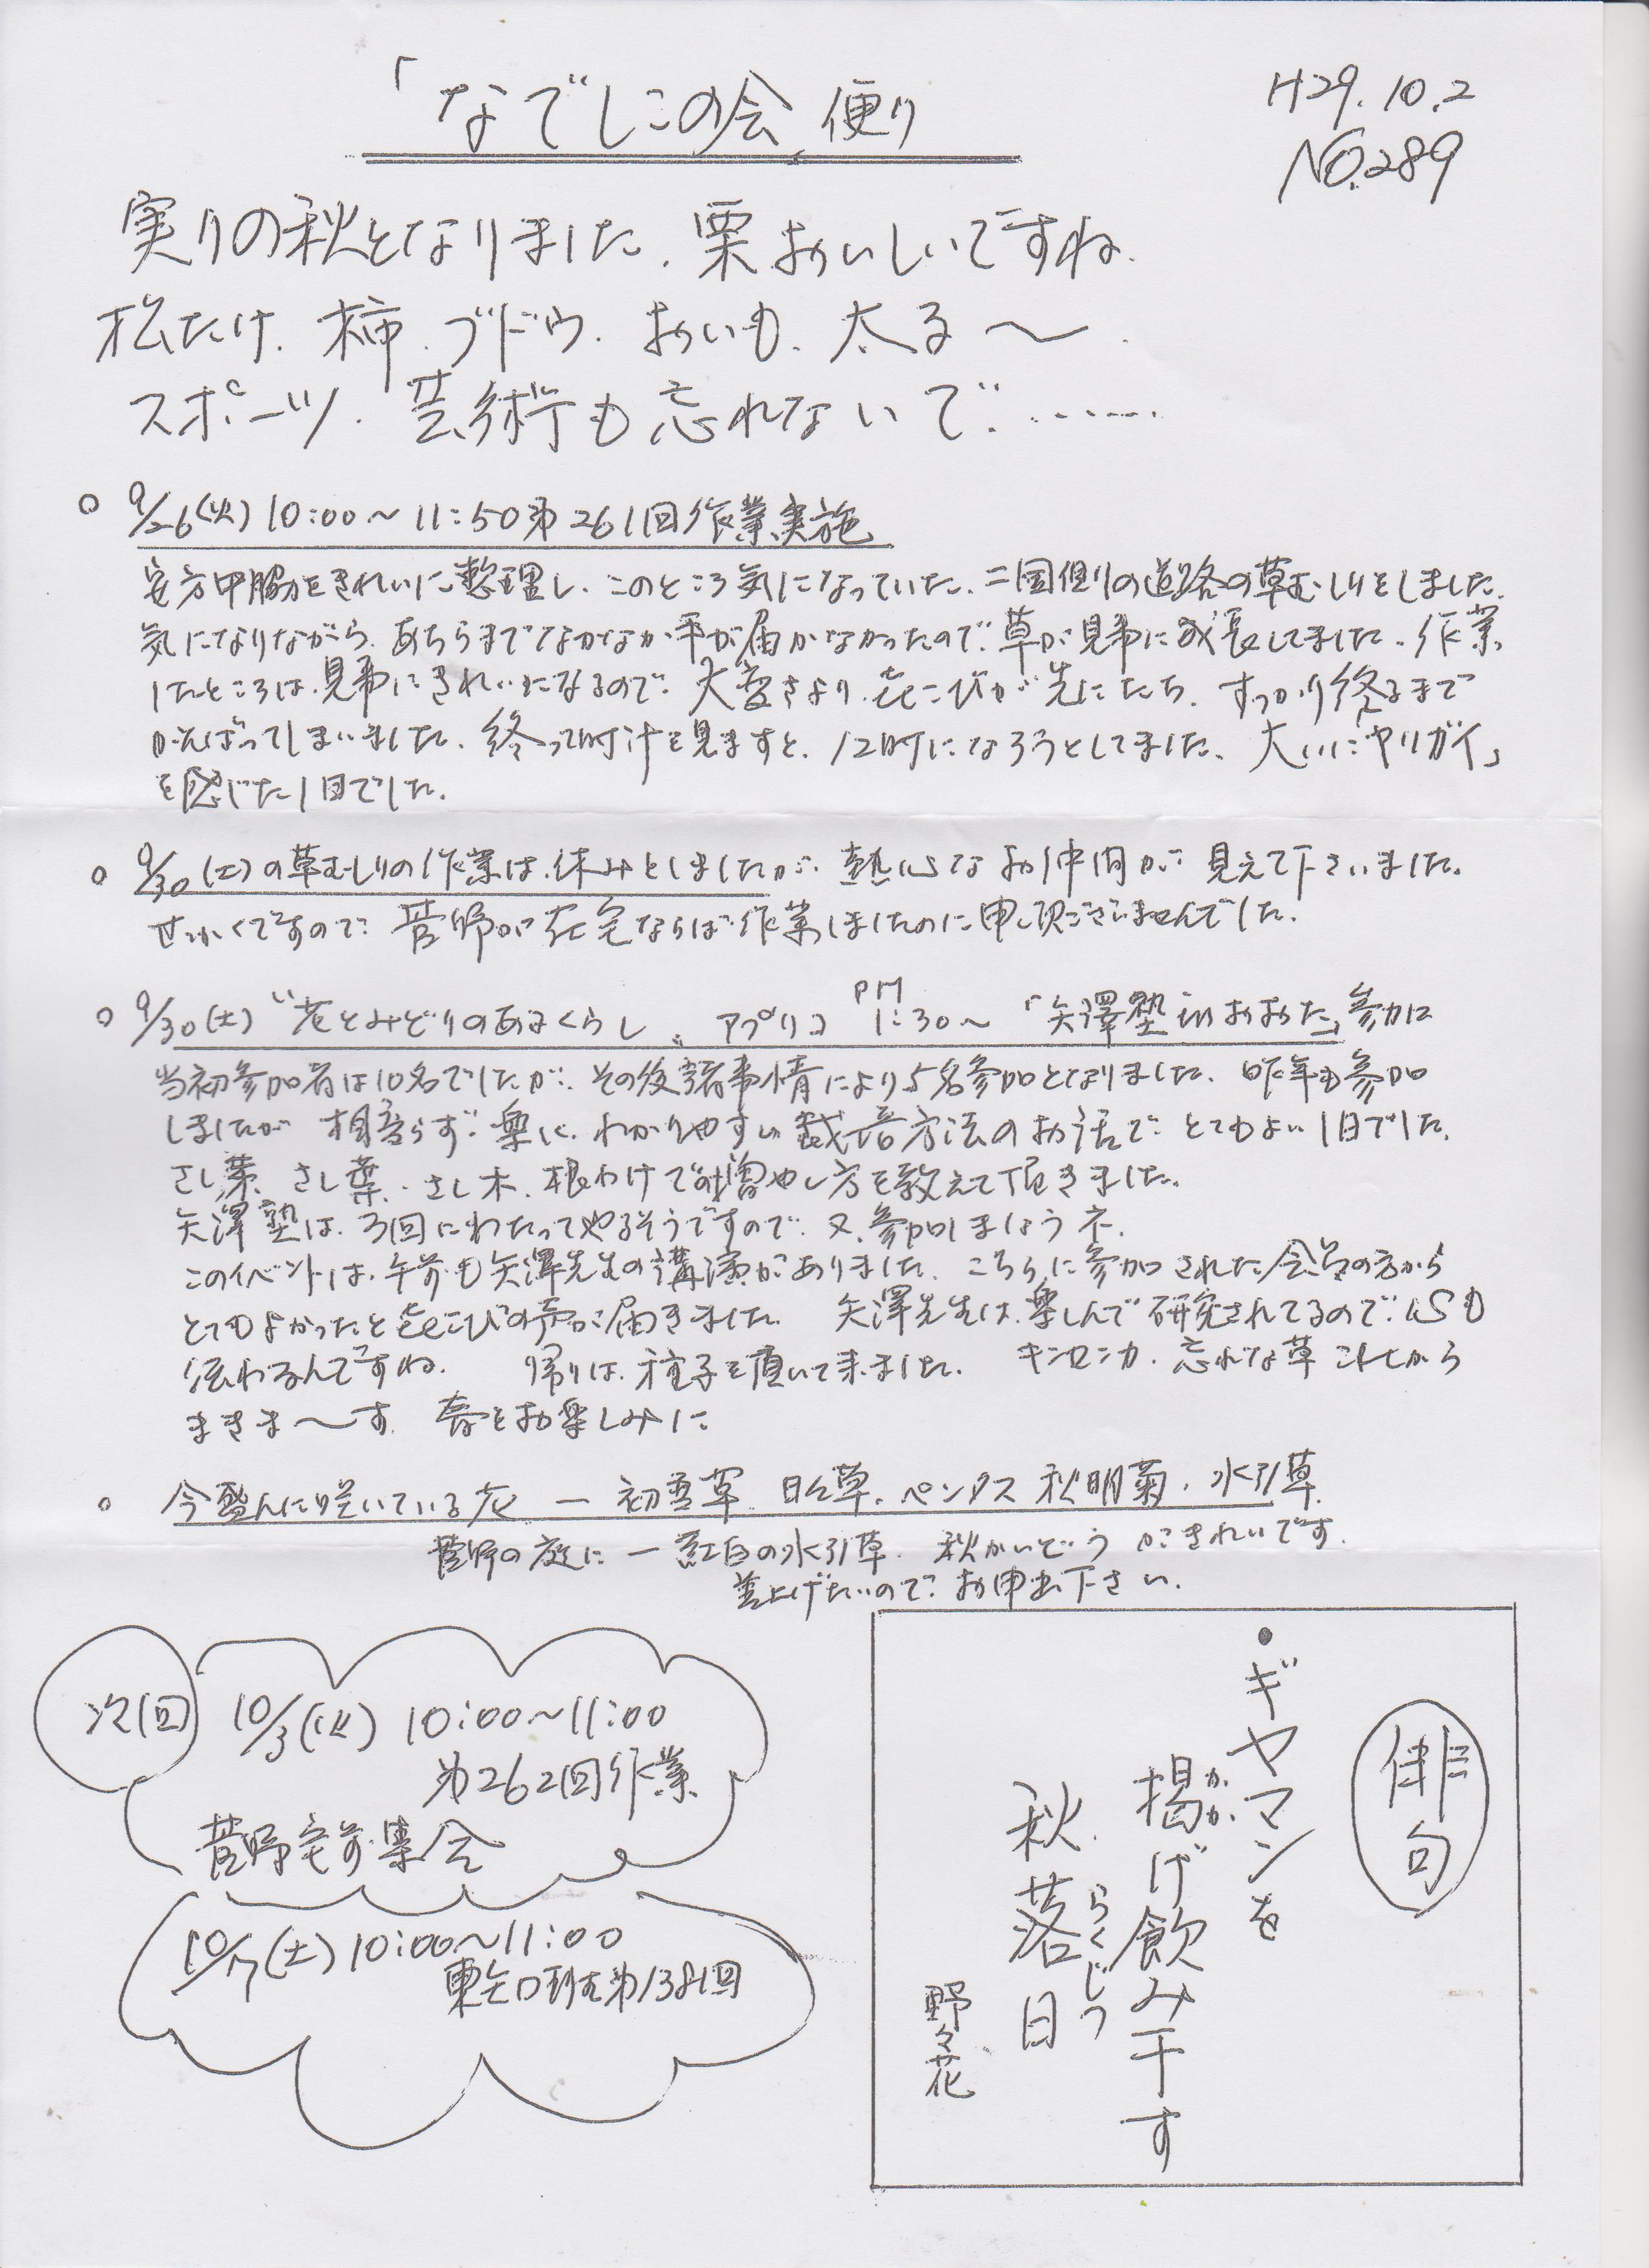 「なでしこの会」便り
H29.10.2
NO.289
実りの秋となりました、栗おいしいですね、
松たけ、柿、ブドウ、おいも、太る〜、
スポーツ、芸術も忘れないで、……
○ 9/26(火)10:00〜11:50第261回作業実施
安方中脇をきれいに整理し、このところ気になっていた、二国側の道路の草むしりをしました、
気になりながら、あちらまでなかなか手が届かなかったので、草が見事に成長してました、作業
したところは、見事にきれいになるので、大変さより、㐂こびが先にたち、すっかり終るまで
がんばってしまいました、終って時計を見ますと、12時になろうとしてました、大いに「ヤリガイ」
を感じた1日でした、
○ 9/30(土)の草むしりの作業は、休みとしましたが、熱心なお仲間が見えて下さいました。
せっかくですので、菅野が在宅ならば作業しましたのに申し訳ございませんでした。
○ 9/30(土)“花とみどりのあるくらし„ アプリコ PM1:30〜「矢澤塾inおおた」参加は
当初参加者は10名でしたが、その後諸事情により5名参加となりました、昨年も参加
しましたが 相変らず、楽しく、わかりやすい栽培方法のお話で とてもよい1日でした、
さし芽、さし葉、さし木、根わけでの増やし方を教えて頂きました。
矢澤塾は、3回にわたってやるそうですので、又、参加しましょうネ、
このイベントは、午前も矢澤先生の講演がありました、こちらに参加された会員の方から
とてもよかったと㐂こびの声が届きました、 矢澤先生は、楽しんで研究されてるので、心も
伝わるんですね、 帰りは、種子を頂いて来ました、 キンセンカ、忘れな草 これから
まきま〜す、 春をお楽しみに
○ 今盛んに咲いている花 ー 初雪草、日々草、ペンタス 秋明菊、水引草
菅野の庭に ー 紅白の水引草、 秋かいどう がきれいです、
差上げたいので、お申出下さい、
次回 10/3(火) 10:00〜11:00
第262回作業
菅野宅前集合
10/7(土)10:00〜11:00
東矢口班第138回
俳句
・ギヤマンを
掲(かか)げ飲み干す
秋落日(らくじつ)
野々花